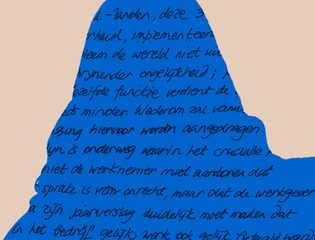 -landen, deze 3
heid, implementeer
leem de wereld niet
rijnender ongelijkheid;
zelfde functie verdient de
minder. Wederom zal
hiervoor worden aangedragen
is onderweg waarin het cruciale
niet de werknemer moet aantonen dat
sprake is van onrecht, maar dat de werkgever
zijn jaarverslag duidelijk moet maken dat
het bedrijf gelijk werk ook gelijk betaald word